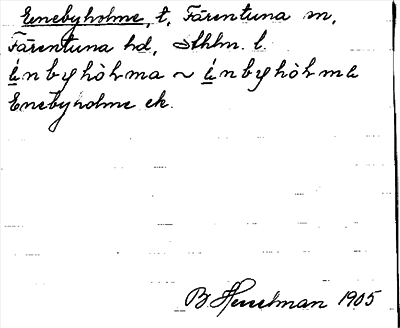 Enebyholme, t, Färentuna sn,
Färentuna hd, Sthlm. l.
ı̀nbyhòLma ~ ı̀nbyhòLma
Enebyholme ek.
B. Hesselman 1905